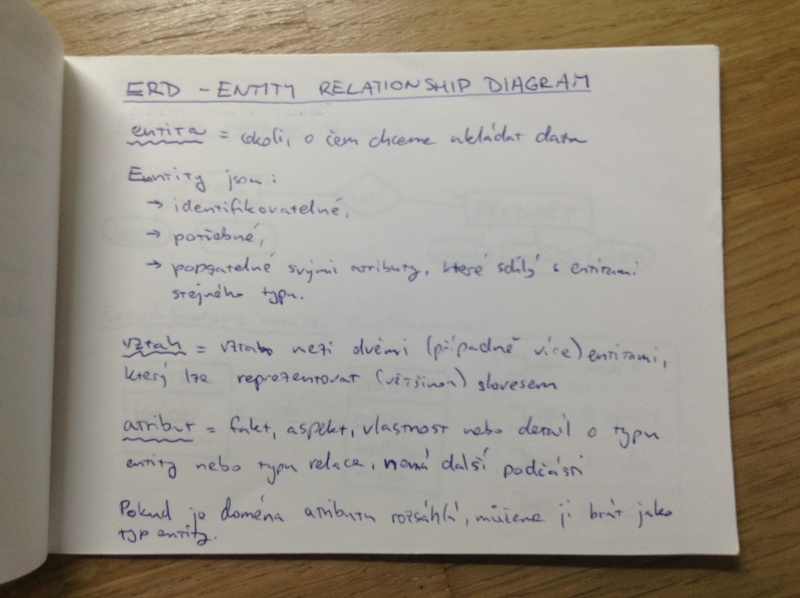 ERD - ENTITY RELATIONSHIP DIAGRAM
entita = cokoli, o čem chceme ukládat data
Entity jsou:
→ identifikovatelné,
→ potřebné,
→ popsatelné svými atributy, které sdílý s entitami
stejného typu.
vztah = vztah mezi dvěmi (případně více) entitami,
který lze reprezentovat (většinou) slovesem
atribut = fakt, aspekt, vlastnost nebo detail o typu
entity nebo typu relace, nemá další podčásti
Pokud je doména atributu rozsáhlá, můžeme ji brát jako
typ entity.